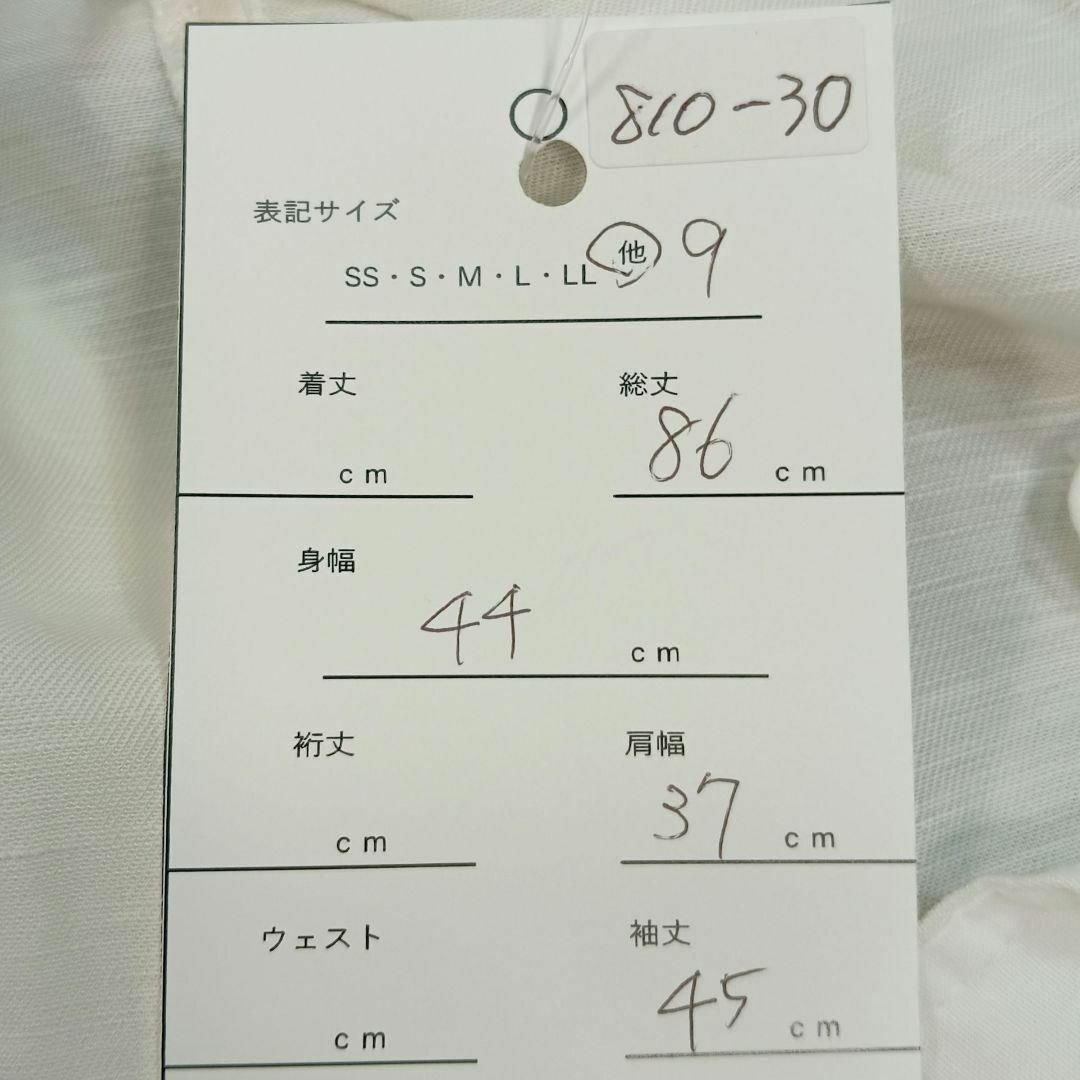 810-30
表記サイズ
SS・S・M・L・LL 他 9
着丈 総丈
cm 86 cm
身幅
44 cm
裄丈 肩幅
cm 37 cm
ウェスト 袖丈
cm 45 cm